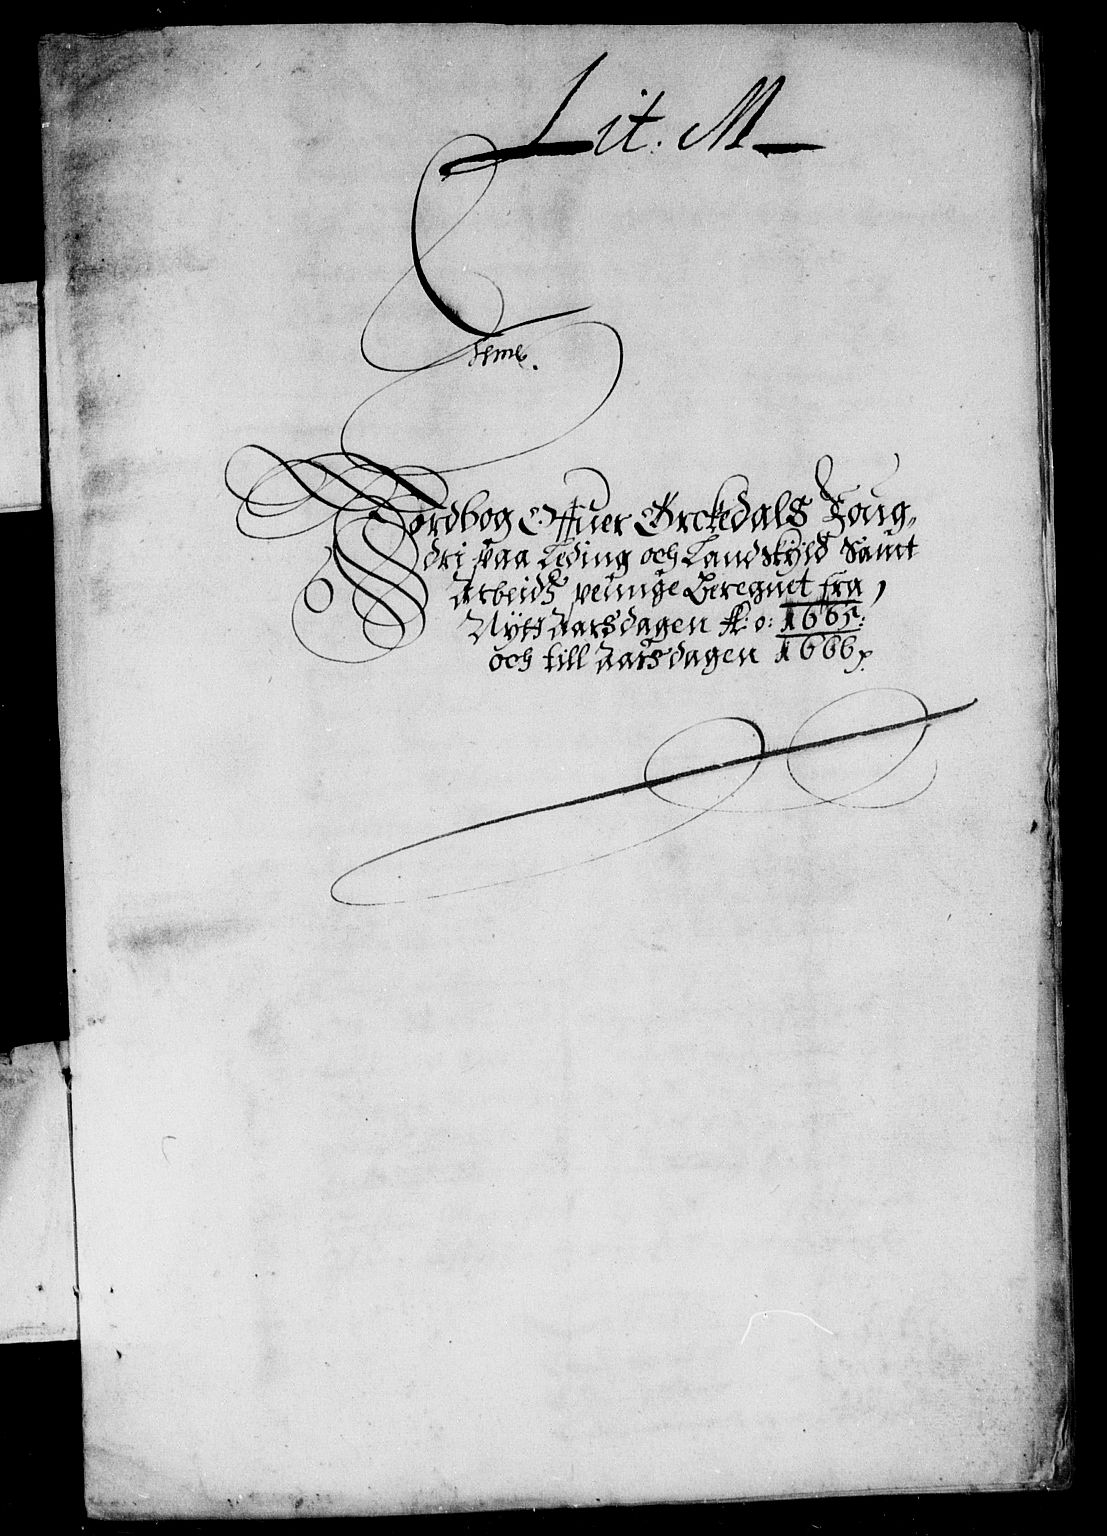 Lit. M
Jordbog Offuer Orckedals Foug-
dri paa Leding och Landskyld Samt
Arbeids pennge Beregnet fra
Nytt Aarsdagen A:o: 1665:
och till Aarsdagen 1666